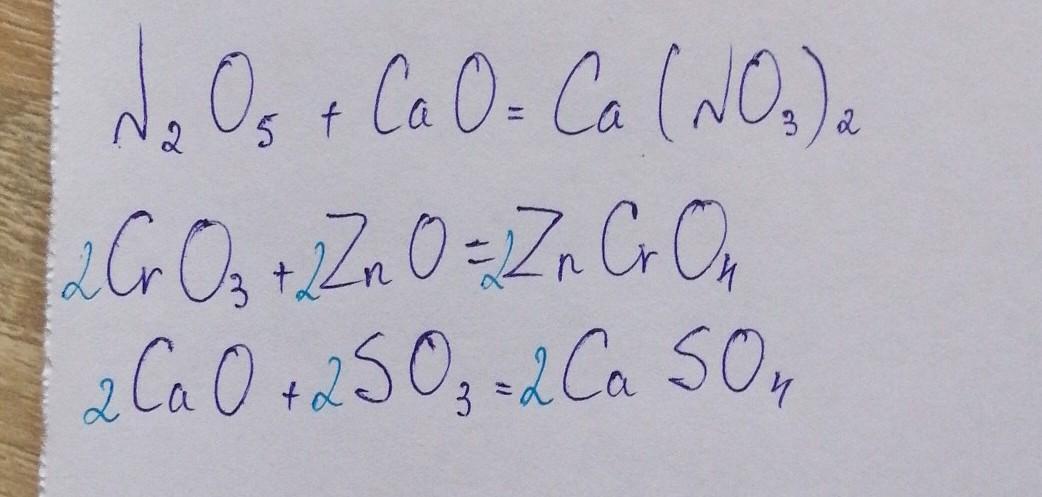 N₂O₅ + CaO = Ca(NO₃)₂
2CrO₃ + 2ZnO = 2ZnCrO₄
2CaO + 2SO₃ = 2CaSO₄